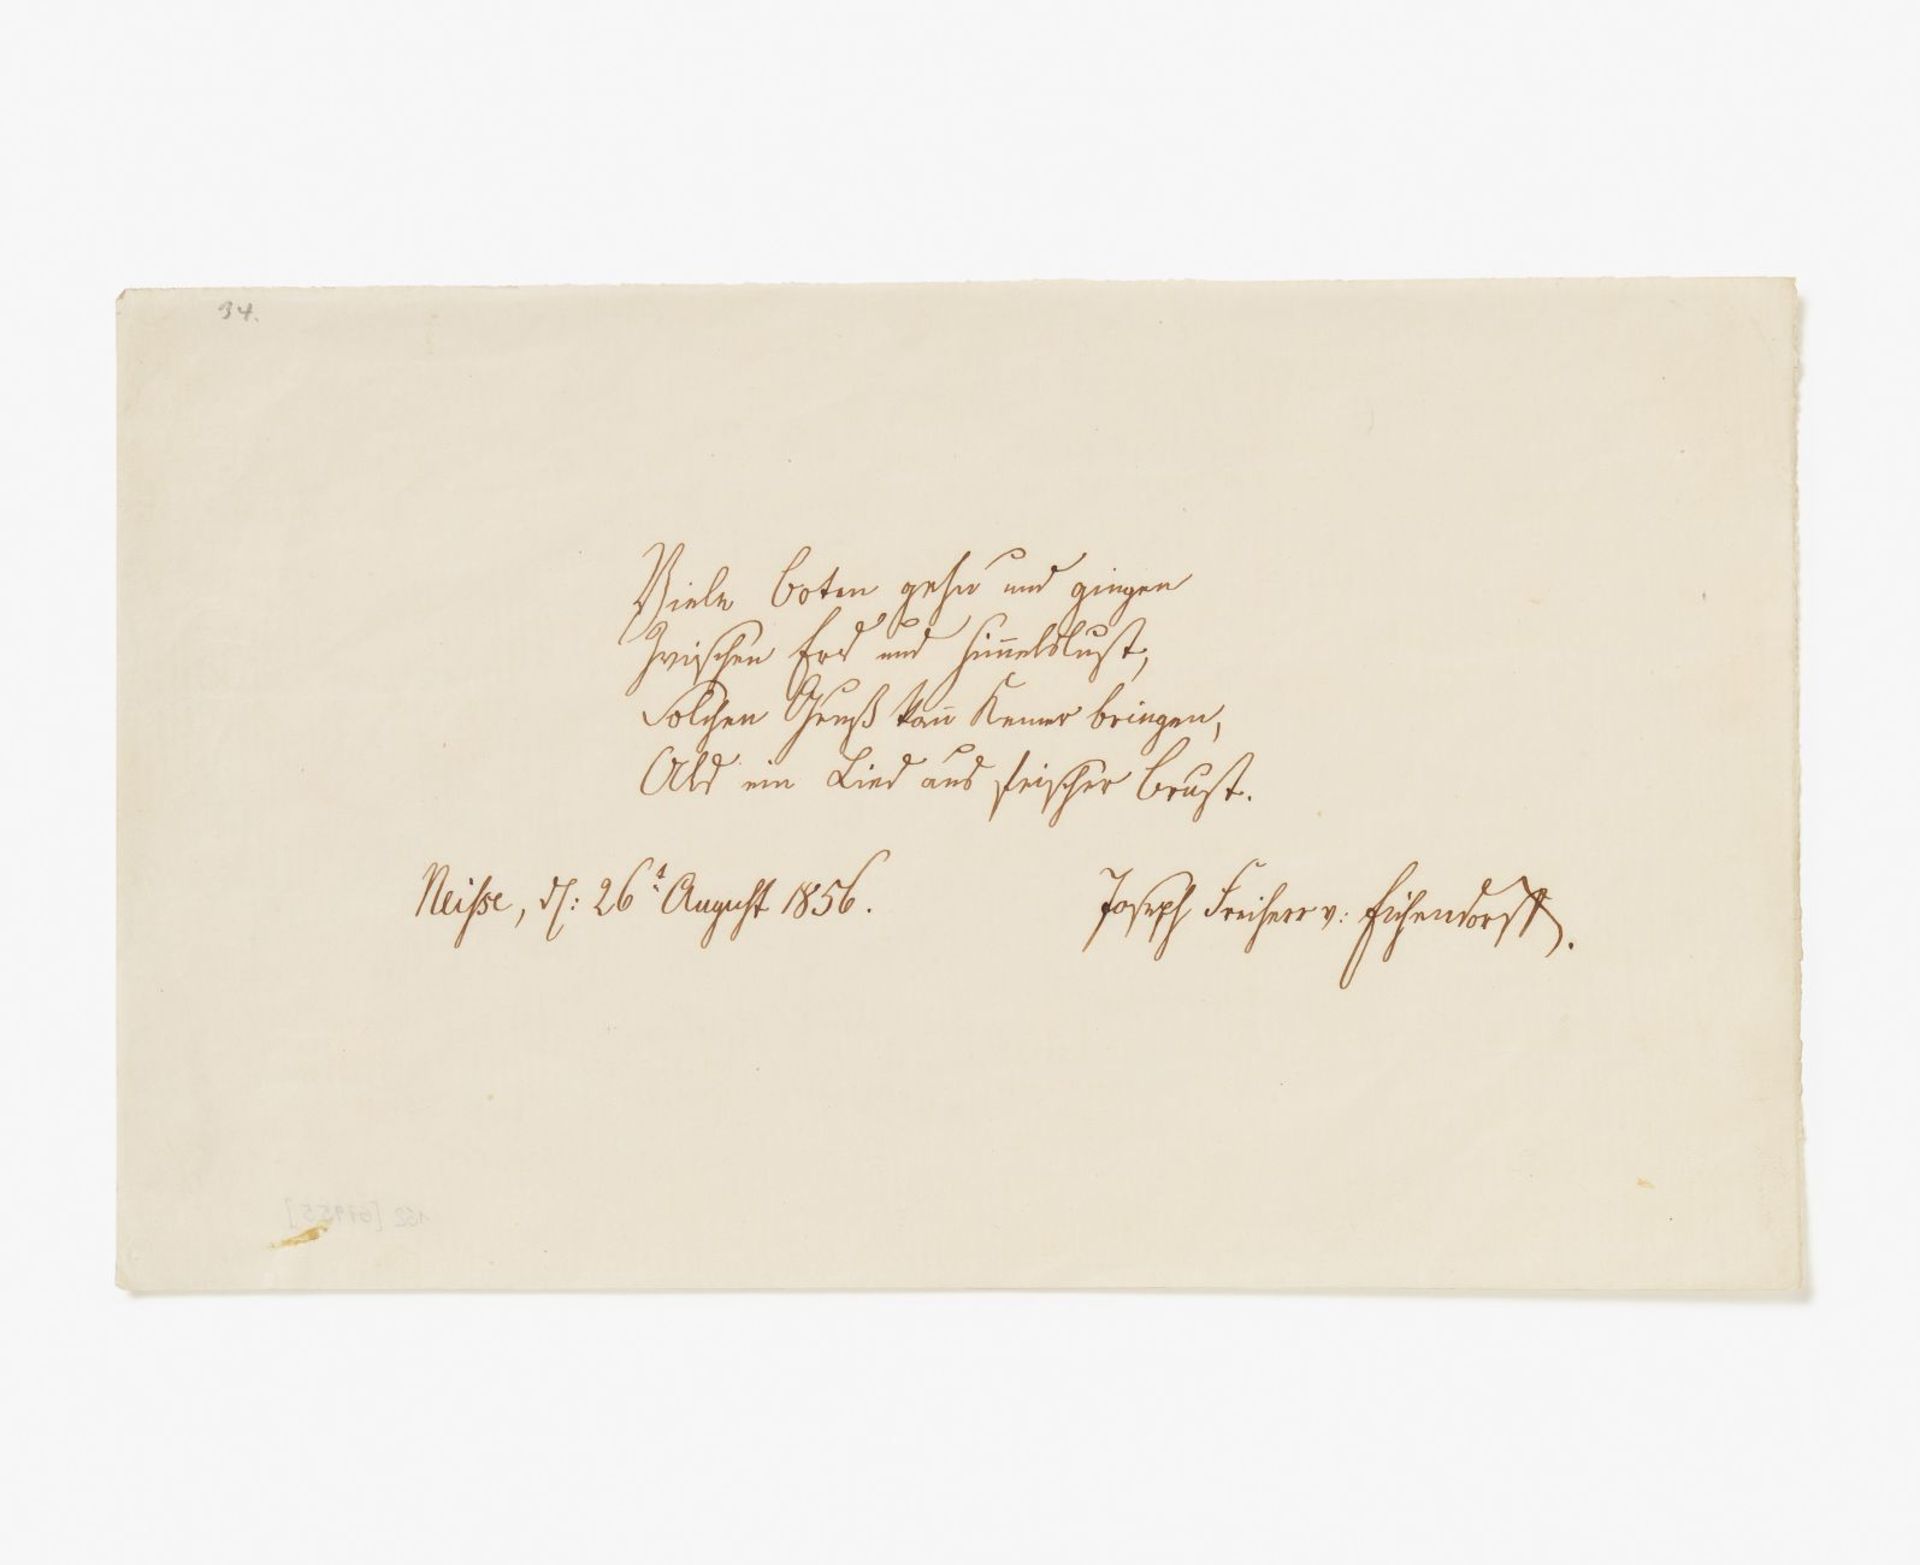 34.
Viele Boten gehn und gingen
Zwischen Erd und Him̅elslust,
Solchen Gruß kan̅ Keiner bringen,
Als ein Lied aus frischer Brust.
Neisse, d: 26t August 1856.
Joseph Freiherr v: Eichendorff.